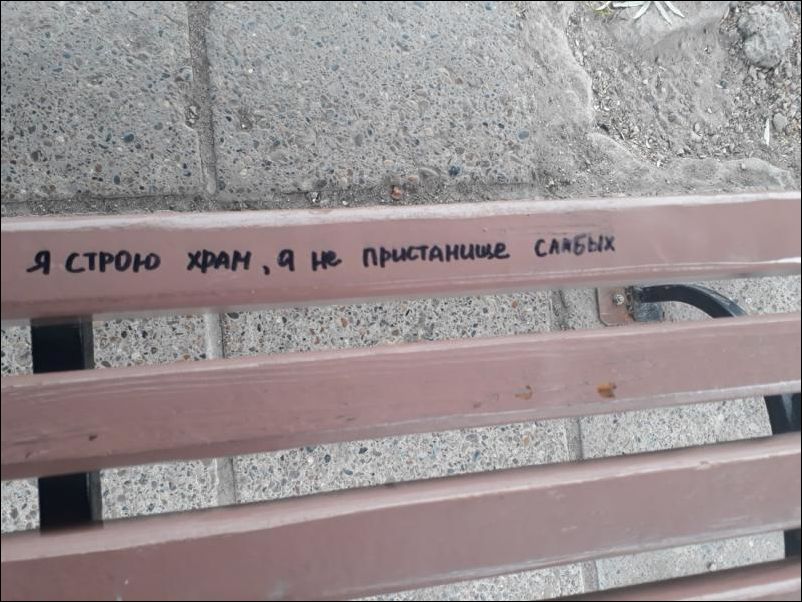 Я СТРОЮ ХРАМ, а не пристанище СЛАБЫХ